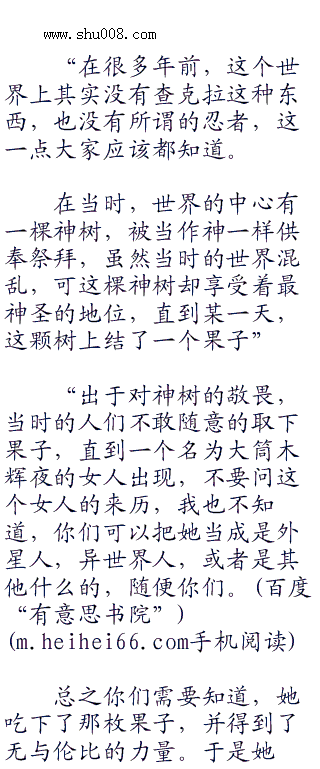 www.shu008.com
“在很多年前，这个世
界上其实没有查克拉这种东
西，也没有所谓的忍者，这
一点大家应该都知道。
在当时，世界的中心有
一棵神树，被当作神一样供
奉祭拜，虽然当时的世界混
乱，可这棵神树却享受着最
神圣的地位，直到某一天，
这颗树上结了一个果子”
“出于对神树的敬畏，
当时的人们不敢随意的取下
果子，直到一个名为大筒木
辉夜的女人出现，不要问这
个女人的来历，我也不知
道，你们可以把她当成是外
星人，异世界人，或者是其
他什么的，随便你们。(百度
“有意思书院”)
(m.heihei66.com手机阅读)
总之你们需要知道，她
吃下了那枚果子，并得到了
无与伦比的力量。于是她